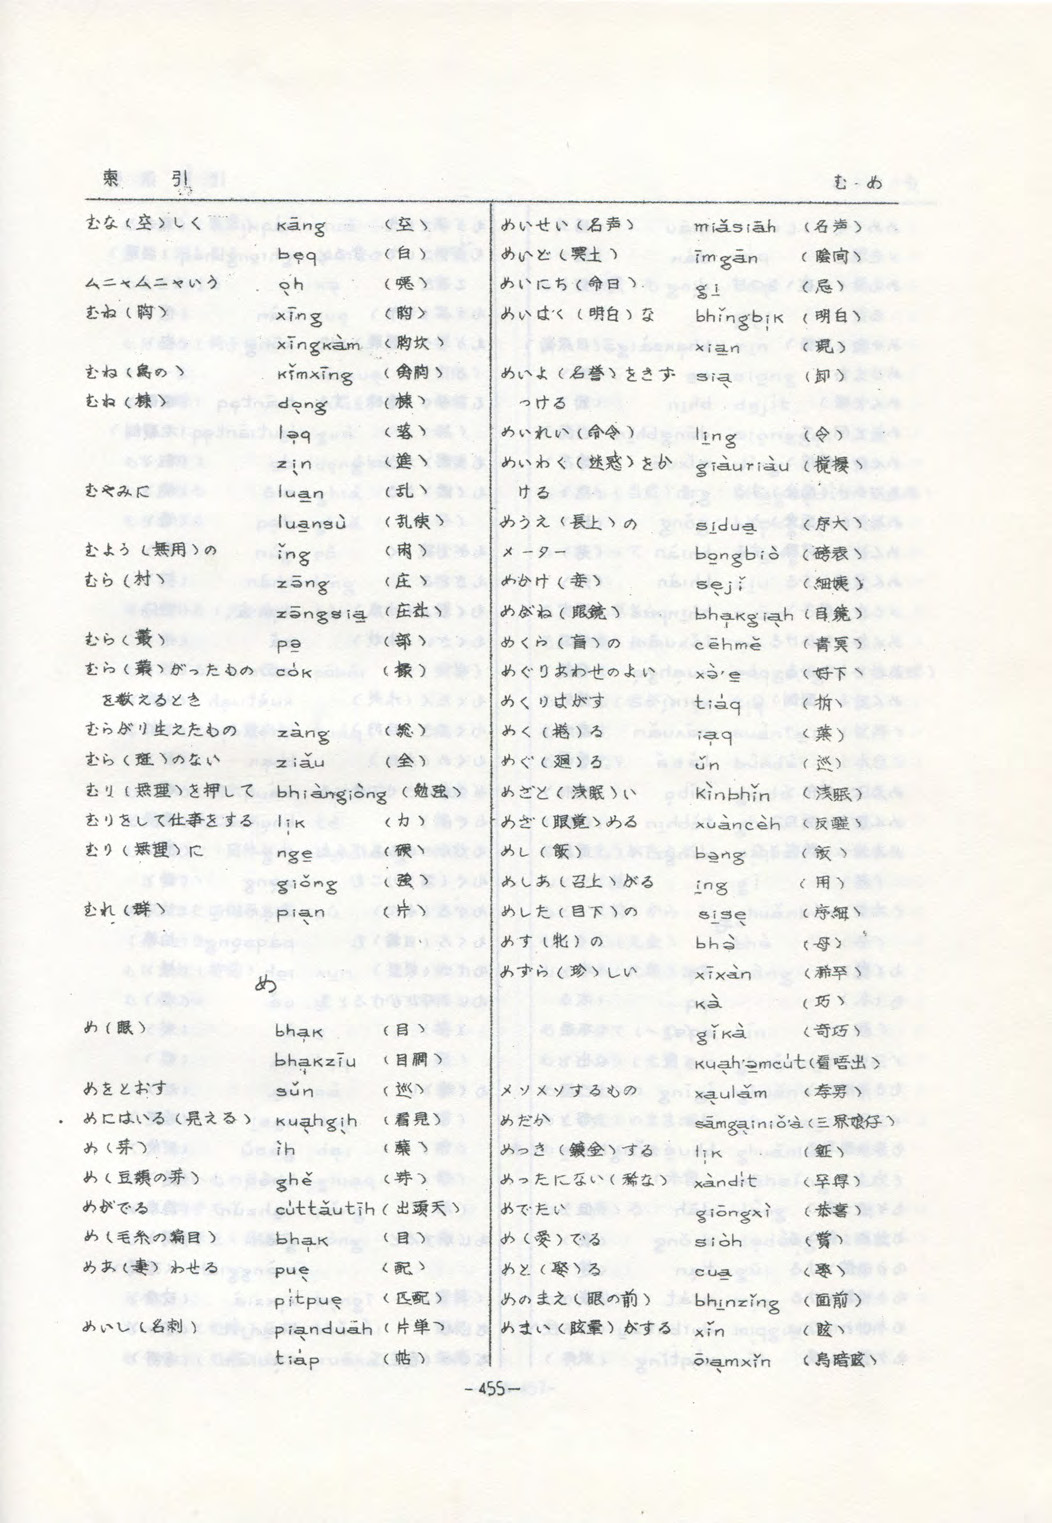 索 引
む・め
むな(空)しく kāng (空)
bẹq (白)
ムニャムニャいう ọ̀h (噁)
むね(胸) xīng (胸)
xīngkàm (胸坎)
むね(鳥の) kǐmxīng (禽胸)
むね(棟) dọng (棟)
lạq (落)
zịn (進)
むやみに luạn (乱)
luạnsù (乱使)
むよう(無用)の ǐng (冗)
むら(村) zōng (庄)
zōngsiạ (庄社)
むら(叢) pə (部)
むら(叢)がったもの cók (撮)
を数えるとき
むらがり生えたもの zàng (総)
むら(斑)のない ziǎu (全)
むり(無理)を押して bhiàngiòng (勉強)
むりをして仕事をする lịk (力)
むり(無理)に ngẹ (硬)
giǒng (強)
むれ(群) piạn (片)
め
め(眼) bhạk (目)
bhạkzīu (目睭)
めをとおす sǔn (巡)
めにはいる(見える) kuạhgịh (看見)
め(芽) ìh (蘖)
め(豆類の芽) ghě
めがでる cúttǎutīh (出頭天)
め(毛糸の編目) bhạk (目)
めあ(妻)わせる puẹ (配)
pítpuẹ (匹配)
めいし(名刺) piạnduāh (片単)
tiáp (帖)
めいせい(名声) miǎsiāh (名声)
めいと(冥土) īmgān (陰间)
めいにち(命日) gị (忌)
めいはく(明白)な bhǐngbịk (明白)
xiạn (現)
めいよ(名誉)をきず siạ (卸)
つける
めいれい(命令) lịng (令)
めいわく(迷惑)をか giàuriàu (攪擾)
ける
めうえ(長上)の sịduạ (序大)
メーター bọngbiò (磅表)
めかけ(妾) sẹjǐ (細姨)
めがね(眼鏡) bhạkgiạh (目鏡)
めくら(盲)の cēhmě (青冥)
めぐりあわせのよい xə̀'ẹ (好下)
めくりはがす tiáq (拆)
めく(捲)る iạq (葉)
めぐ(廻)る ǔn (巡)
めざと(浅眠)い kìnbhǐn (浅眠)
めざ(眼覚)める xuàncèh (反醒)
めし(飯) bạng (飯)
めしあ(召上)がる ịng (用)
めした(目下)の sịsẹ (序細)
めす(牝)の bhə̀ (母)
めずら(珍)しい xīxàn (稀罕)
kà (巧)
gǐkà (奇巧)
kuạh'ə̣mcút (看唔出)
メソメソするもの xạulǎm (孝男)
めだか sāmgạiniǒ'à (三界娘仔)
めっき(鍍金)する lịk (鉦)
めったにない(稀な) xàndít (罕得)
めでたい giōngxì (恭喜)
め(愛)でる siòh (賞)
めと(娶)る cuạ (娶)
めのまえ(眼の前) bhịnzǐng (面前)
めまい(眩暈)がする xǐn (眩)
ō'ạmxǐn (烏暗眩)
-455-